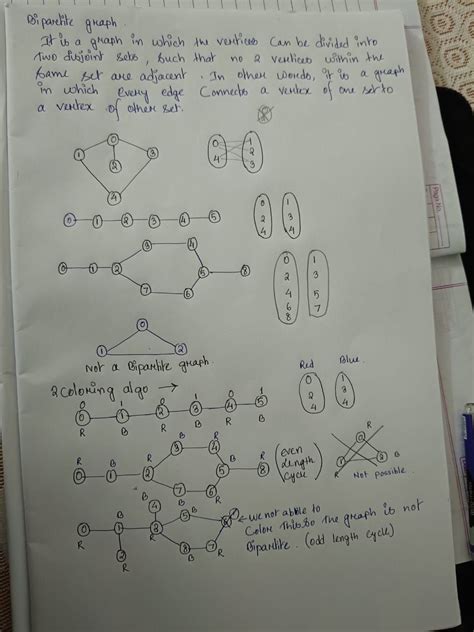 Bipartite graph.
It is a graph in which the vertices can be divided into
Two disjoint sets, such that no 2 vertices within the
same set are adjacent. In other words, it is a graph
in which every edge Connects a vertex of one set to
a vertex of other set.
0
1 2 3
4
0 1
4 2
3
0 1 2 3 4 5
0 1
2 3
4 4
3 4
0 1 2 5 8
7 6
0 1
2 3
4 5
6 7
8
0
1 2
Not a Bipartite graph.
2 Coloring algo →
0 1 0 1 0 1
0 1 2 3 4 5
R B R B R B
Red Blue
0 1
2 3
4 4
B R
3 4
R B R B R
0 1 2 5 8
7 6
B R
(even length cycle)
R
0
1 2
R B
Not possible.
B R
4 B
5
0 1 3 8
R B R
2 8 7
R B R
we not able to
Color this so the graph is not
Bipartite. (odd length cycle)